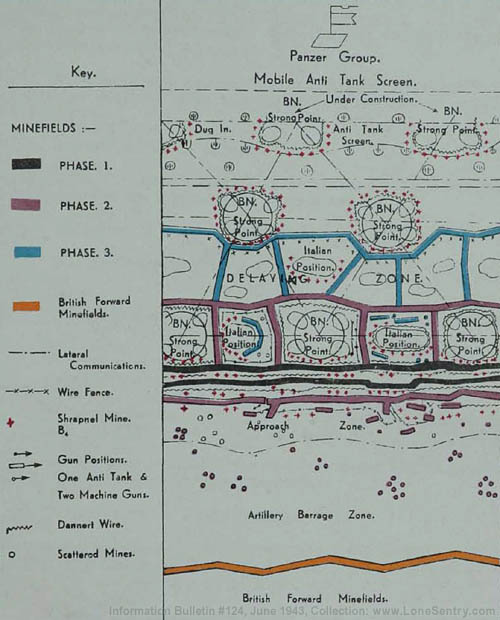 Key.
MINEFIELDS :—
PHASE. 1.
PHASE. 2.
PHASE. 3.
British Forward
Minefields.
Lateral
Communications.
Wire Fence.
Shrapnel Mine.
B4
Gun Positions.
One Anti Tank &
Two Machine Guns.
Dannert Wire.
Scattered Mines.
Panzer Group.
Mobile Anti Tank Screen.
BN.
Under Construction.
BN.
Strong Point
Dug In.
Anti Tank
Screen
Strong Point
BN.
Strong
Point.
BN.
Strong
Point.
Italian
Position.
DELAYING ZONE.
BN.
Strong
Point
Italian
Position
BN.
Strong
Point
Italian
Position.
BN.
Strong
Point
Approach Zone.
Artillery Barrage Zone.
British Forward Minefields.
Information Bulletin #124, June 1943, Collection: www.LoneSentry.com